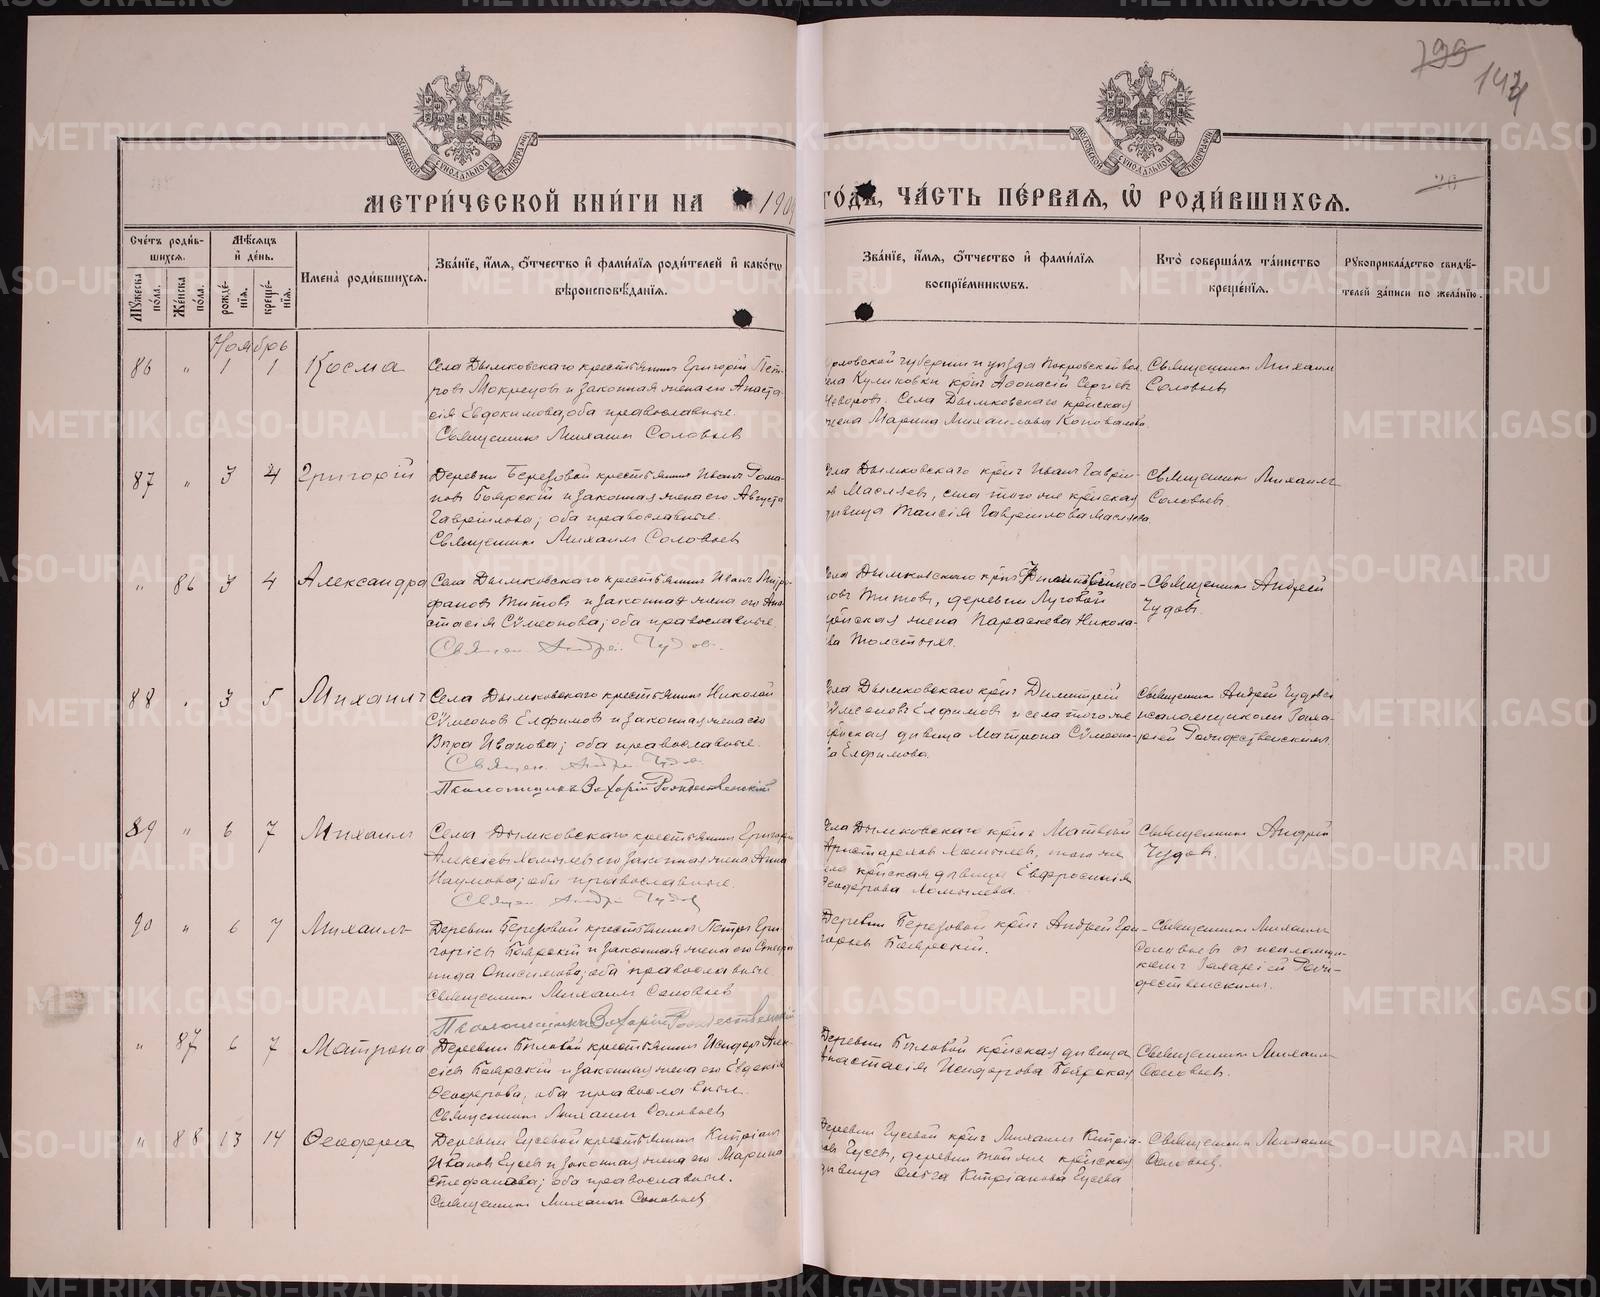 799
144
МОСКОВСКОЙ СѴНОДАЛЬНОЙ ТИПОГРАФІИ
МОСКОВСКОЙ СѴНОДАЛЬНОЙ ТИПОГРАФІИ
МЕТРИ́ЧЕСКОЙ КНИ́ГИ НА 190
ГО́ДЪ, ЧА́СТЬ ПЕ́РВАЯ, Ѡ РОДИ́ВШИХСѦ.
Сче́тъ роди́вшихся.
Му́жеска по́ла.
Же́нска по́ла.
Мѣ́сяцъ и де́нь.
рожде́нія.
креще́нія.
Имена̀ роди́вшихся.
Зва́ніе, и́мя, о́тчество и фами́лія роди́телей и како́гѡ
вѣроисповѣ́данія.
Зва́ніе, и́мя, о́тчество и фами́лія
воспріе́мникѡвъ.
Кто̀ соверша́лъ та́инство
креще́нія.
Рꙋкоприкла́дство свидѣ́-
телей за́писи по жела́нію.
Ноябрь
86 " 1 1 Косма
Села Дымковскаго крестьянинъ Григорій Пет-
ровъ Мокрецовъ и законная жена его Анаста-
сія Евдокимова, оба православные.
Священникъ Михаилъ Соловьевъ
Орловской губерніи и уезда Покровской вол.
села Куликовки крнъ Аѳонасій Сергіевъ
Села Дымковскаго крнская
жена Марина Михаилова Коновалова
Священникъ Михаилъ
Соловьевъ
87 " 3 4 Григорій
Деревни Березовой крестьянинъ Иванъ Рома-
новъ Боярскій и законная жена его Августа
Гавріилова; оба православные.
Священникъ Михаилъ Соловьевъ
Села Дымковскаго крнъ Иванъ Гаврии-
въ Масляевъ, села того же крнская
дѣвица Таисія Гавриилова Масляева
Священникъ Михаилъ
Соловьевъ
" 86 3 4 Александра
Села Дымковскаго крестьянинъ Иванъ Митро-
фановъ Титовъ и законная жена его Ана-
стасія Сѵмеонова; оба православные.
Священ. Андрей Чудов.
Села Дымковскаго крнъ
Титовъ, деревни Луговой
крнская жена Параскева Никола-
ва Толстыхъ.
Священникъ Андрей
Чудовъ
88 " 3 5 Михаилъ
Села Дымковскаго крестьянинъ Николай
Сѵмеоновъ Елфимовъ и законная жена его
Вѣра Иванова; оба православные.
Священ. Андрей Чудов
Псаломщикъ Захарій Рождественскій
Села Дымковскаго крнъ Димитрій
Сѵмеоновъ Елфимовъ и села того же
крнская дѣвица Матрона Сѵмеоно-
ва Елфимова.
Священникъ Андрей Чудовъ съ
псаломщикомъ Заха-
ріей Рождественскимъ
89 " 6 7 Михаилъ
Села Дымковскаго крестьянинъ Григорій
Алексѣевъ Хомылевъ его законная жена Анна
Наумова; оба православные.
Священ. Андрей Чудов
Села Дымковскаго крнъ Матвѣй
Аристарховъ Хомылевъ, того же
села крнская дѣвица Евфросинія
Ѳеодорова Хомылева.
Священникъ Андрей
Чудовъ.
90 " 6 7 Михаилъ
Деревни Березовой крестьянинъ Петръ Гри-
горіевъ Боярскій и законная жена его
Онисимова; оба православные.
Священникъ Михаилъ Соловьевъ
Псаломщикъ Захарій Рождественскій
Деревни Березовой крнъ Андрей Гри-
горьевъ Боярскій.
Священникъ Михаилъ
Соловьевъ съ псаломщи-
комъ Захаріей Рож-
дественскимъ.
" 87 6 7 Матрона
Деревни Быловой крестьянинъ Исидоръ Алек-
сіевъ Боярскій и законная жена его Евдокія
Ѳеодорова, оба православные.
Священникъ Михаилъ Соловьевъ
Деревни Быловой крнская дѣвица
Анастасія Исидорова Боярская
Священникъ Михаилъ
Соловьевъ.
" 88 13 14 Ѳеодора
Деревни Гусевой крестьянинъ Кипріанъ
Ивановъ Гусевъ и законная жена его Марина
Стефанова; оба православные.
Священникъ Михаилъ Соловьевъ
Деревни Гусевой крнъ Михаилъ Кипріа-
новъ Гусевъ, деревни той же крнская
дѣвица Ольга Кипріанова Гусева
Священникъ Михаилъ
Соловьевъ.
METRIKI.GASO-URAL.RU